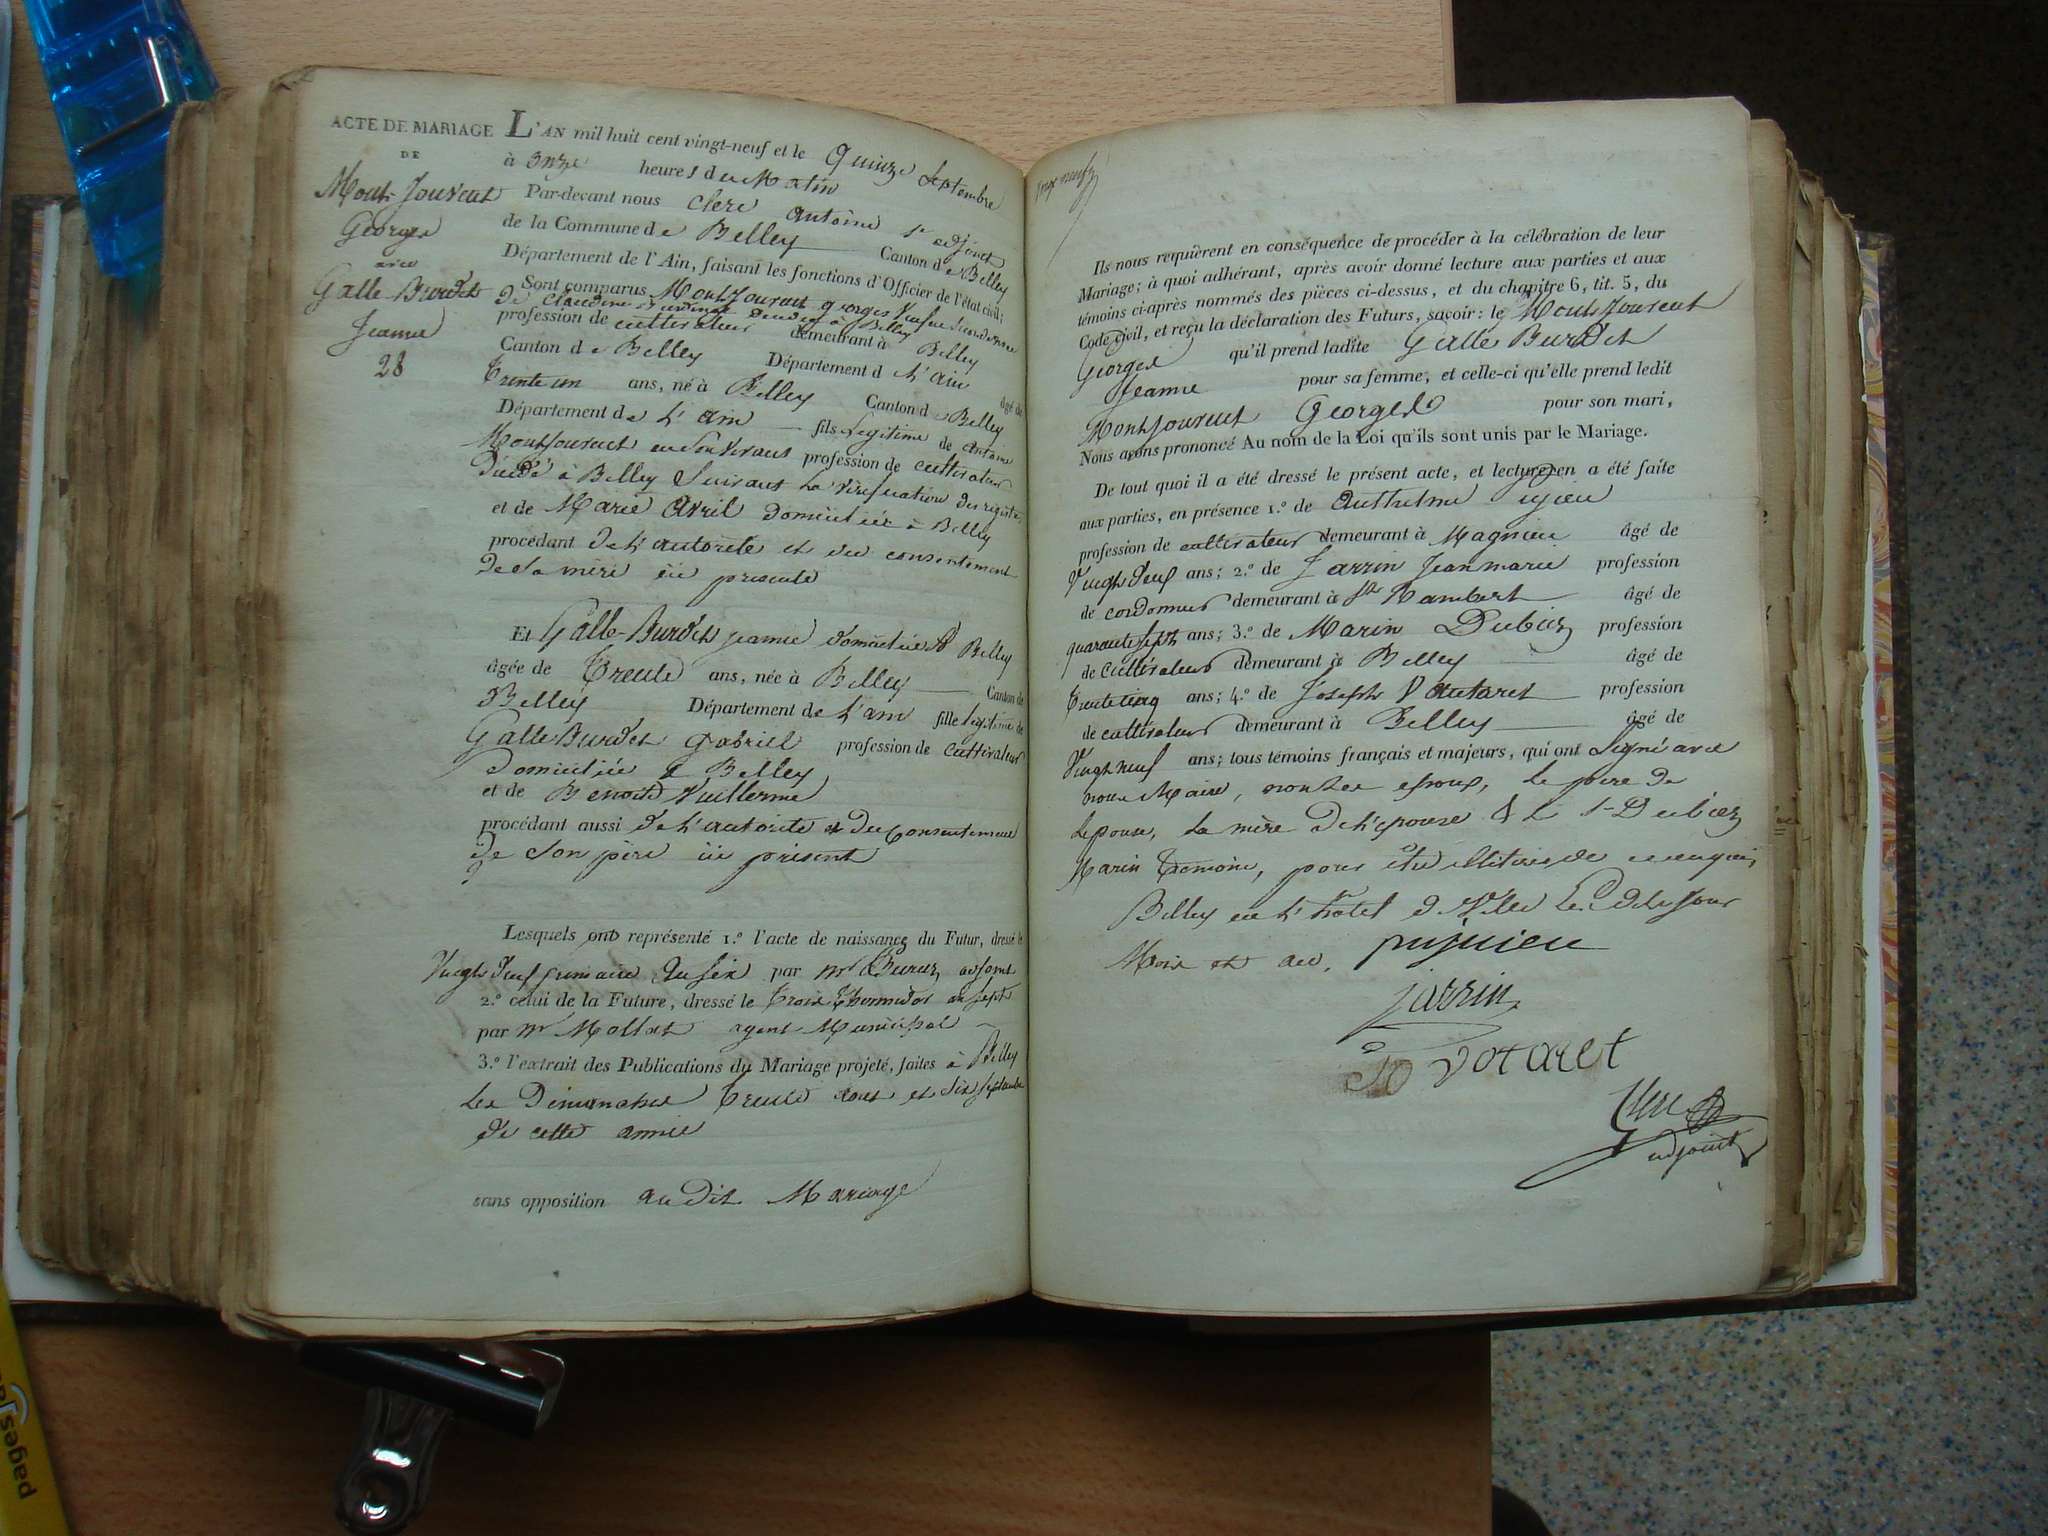 ACTE DE MARIAGE
DE
Mont-Jouvent
Georges
avec
Galle-Burdet
Jeanne
28
L'AN mil huit cent vingt-neuf et le Quinze Septembre
à onze heures du Matin
Par-devant nous Clerc antoine 1er adjoint
de la Commune de Belley Canton de Belley
Département de l'Ain, faisant les fonctions d'Officier de l'état civil;
Sont comparus Montjouvent georges
de Claudine décédée à Belley
profession de cultivateur demeurant à Belley
Canton de Belley Département de L'ain
âgé de
Trente un ans, né à Belley Canton de Belley
Département de L'ain fils Legitime de antoine
Montjouvent profession de cultivateur
Décédé à Belley Suivant La vérification des registres
et de Marie Avril domiciliée à Belley
procédant de L'autorité et du consentement
de Sa mère ici presente
Et Galle-Burdet jeanne domiciliée à Belley
âgée de Trente ans, née à Belley Canton de
Belley Département de L'ain fille legitime de
Galle Burdet Gabriel profession de cultivateur
Domicilié à Belley
et de Benoite Vuillerme
procédant aussi de L'autorité et du Consentement
de Son père ici présent
Lesquels ont représenté 1.º l'acte de naissance du Futur, dressé le
Vingt Deuf frimaire an six par mr adjoint
2.º celui de la Future, dressé le Trois Thermidor an sept
par mr Mollat agent Municipal
3.º l'extrait des Publications du Mariage projeté, faites à Belley
Les Dimanches Trente aout et Six Septembre
de cette année
sans opposition au Dit Mariage
Ils nous requièrent en conséquence de procéder à la célébration de leur
Mariage; à quoi adhérant, après avoir donné lecture aux parties et aux
témoins ci-après nommés des pièces ci-dessus, et du chapitre 6, tit. 5, du
Code civil, et reçu la déclaration des Futurs, savoir: le Montjouvent
Georges qu'il prend ladite Galle Burdet
Jeanne pour sa femme, et celle-ci qu'elle prend ledit
Montjouvent Georges pour son mari,
Nous avons prononcé Au nom de la Loi qu'ils sont unis par le Mariage.
De tout quoi il a été dressé le présent acte, et lecture en a été faite
aux parties, en présence 1.º de Anthelme
profession de cultivateur demeurant à Magnieu âgé de
Vingt Deuf ans; 2.º de Jarrin Jean marie profession
de cordonnier demeurant à St Rambert âgé de
quarante sept ans; 3.º de Marin Dubiez profession
de cultivateur demeurant à Belley âgé de
Trente cinq ans; 4.º de Joseph Vautaret profession
de cultivateur demeurant à Belley âgé de
Vingt neuf ans; tous témoins français et majeurs, qui ont Signé avec
nous Maire, non Les epoux, Le père de
Lepouse, La mère De L'epouse & Le Sr Dubiez
Marin Témoin, pour être illitérés de
Belley en L'hotel de Ville Les dits Jour
Mois et an.
pujnieu
jarrin
jo votaret
Clerc
adjoint
pages